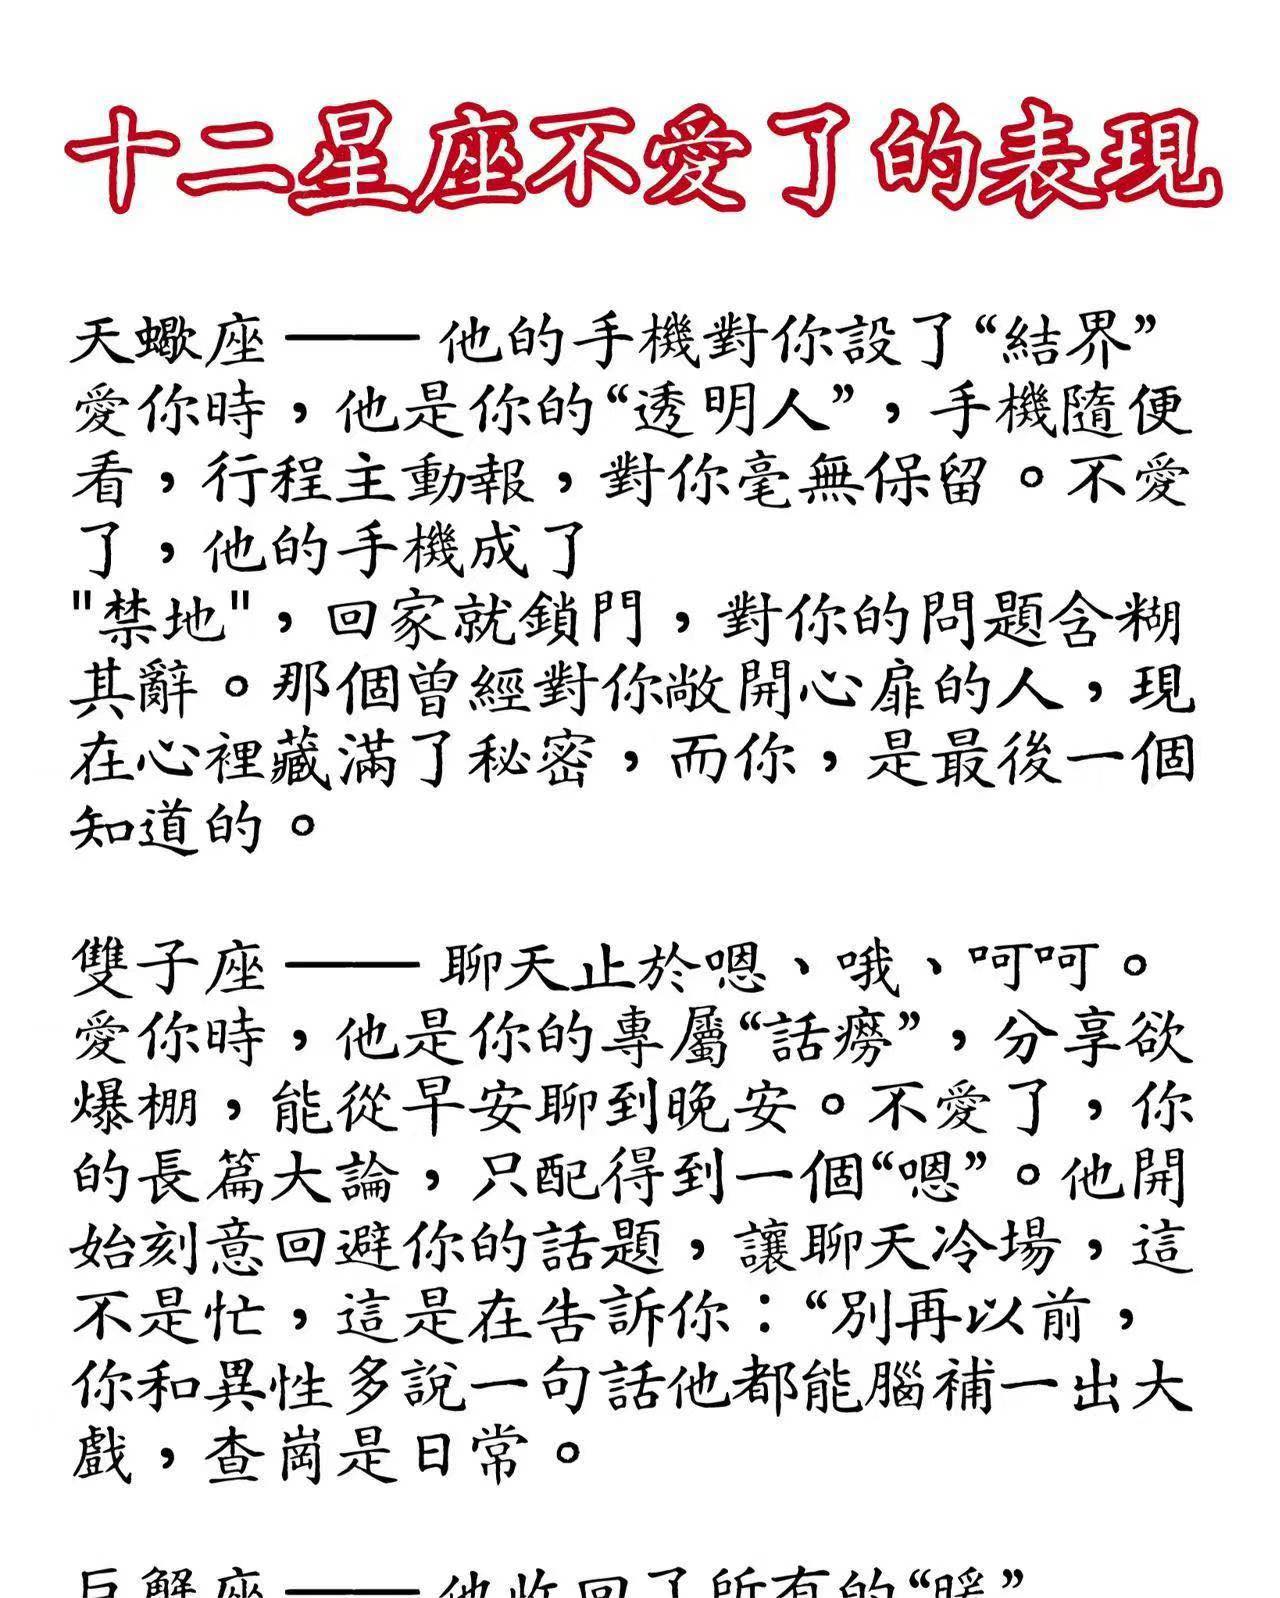 十二星座不愛了的表現
天蠍座 —— 他的手機對你設了“結界”
愛你時，他是你的“透明人”，手機隨便
看，行程主動報，對你毫無保留。不愛
了，他的手機成了
"禁地"，回家就鎖門，對你的問題含糊
其辭。那個曾經對你敞開心扉的人，現
在心裡藏滿了秘密，而你，是最後一個
知道的。
雙子座 —— 聊天止於嗯、哦、呵呵。
愛你時，他是你的專屬“話癆”，分享欲
爆棚，能從早安聊到晚安。不愛了，你
的長篇大論，只配得到一個“嗯”。他開
始刻意回避你的話題，讓聊天冷場，這
不是忙，這是在告訴你：“別再以前，
你和異性多說一句話他都能腦補一出大
戲，查崗是日常。
巨蟹座 —— 他收回了所有的“暖”